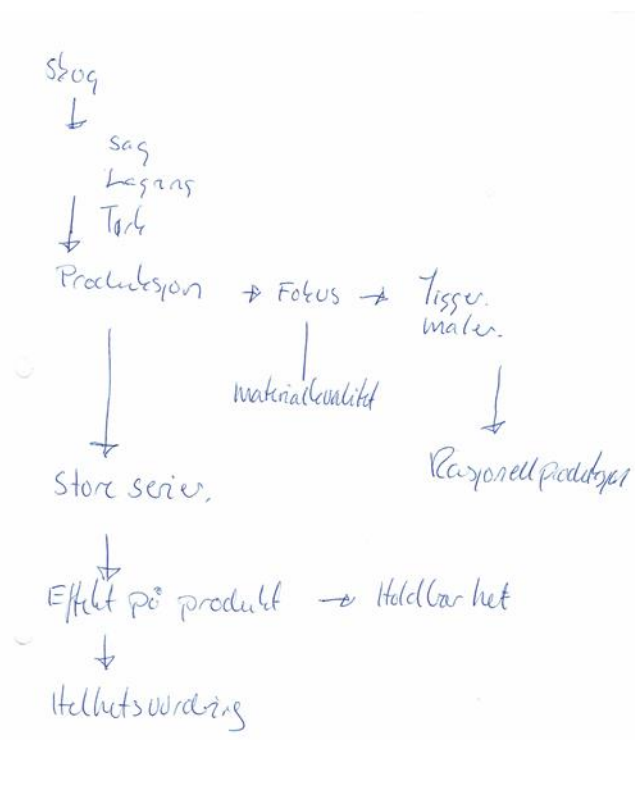 Skog
Sag
Lagring
Tørk
Produksjon → Fokus → Ligger.
maler.
Materialkvalitet
Store serier.
Rasjonell produksjon
Effekt på produkt → Holdbarhet
Helhetsvurdering